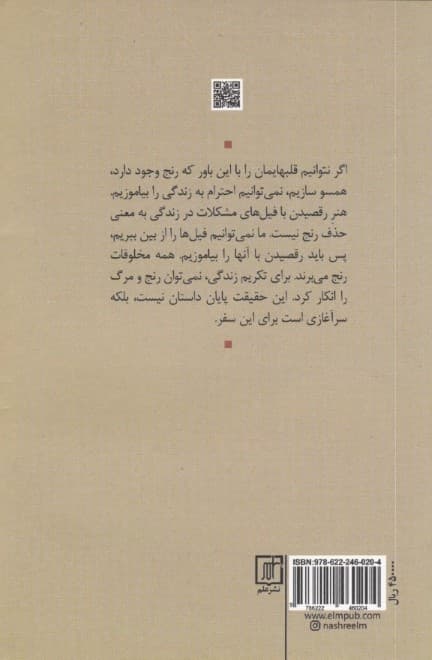 اگر نتوانیم قلبهایمان را با این باور که رنج وجود دارد،
همسو سازیم، نمی‌توانیم احترام به زندگی را بیاموزیم.
هنر رقصیدن با فیل‌های مشکلات در زندگی به معنی
حذف رنج نیست. ما نمی‌توانیم فیل‌ها را از بین ببریم،
پس باید رقصیدن با آنها را بیاموزیم. همه مخلوقات
رنج می‌برند. برای تکریم زندگی، نمی‌توان رنج و مرگ
را انکار کرد. این حقیقت پایان داستان نیست، بلکه
سرآغازی است برای این سفر.
نشر علم
ISBN: 978-622-246-020-4
9 786222 460204
www.elmpub.com
nashreelm
۴۵۰۰۰۰ ریال